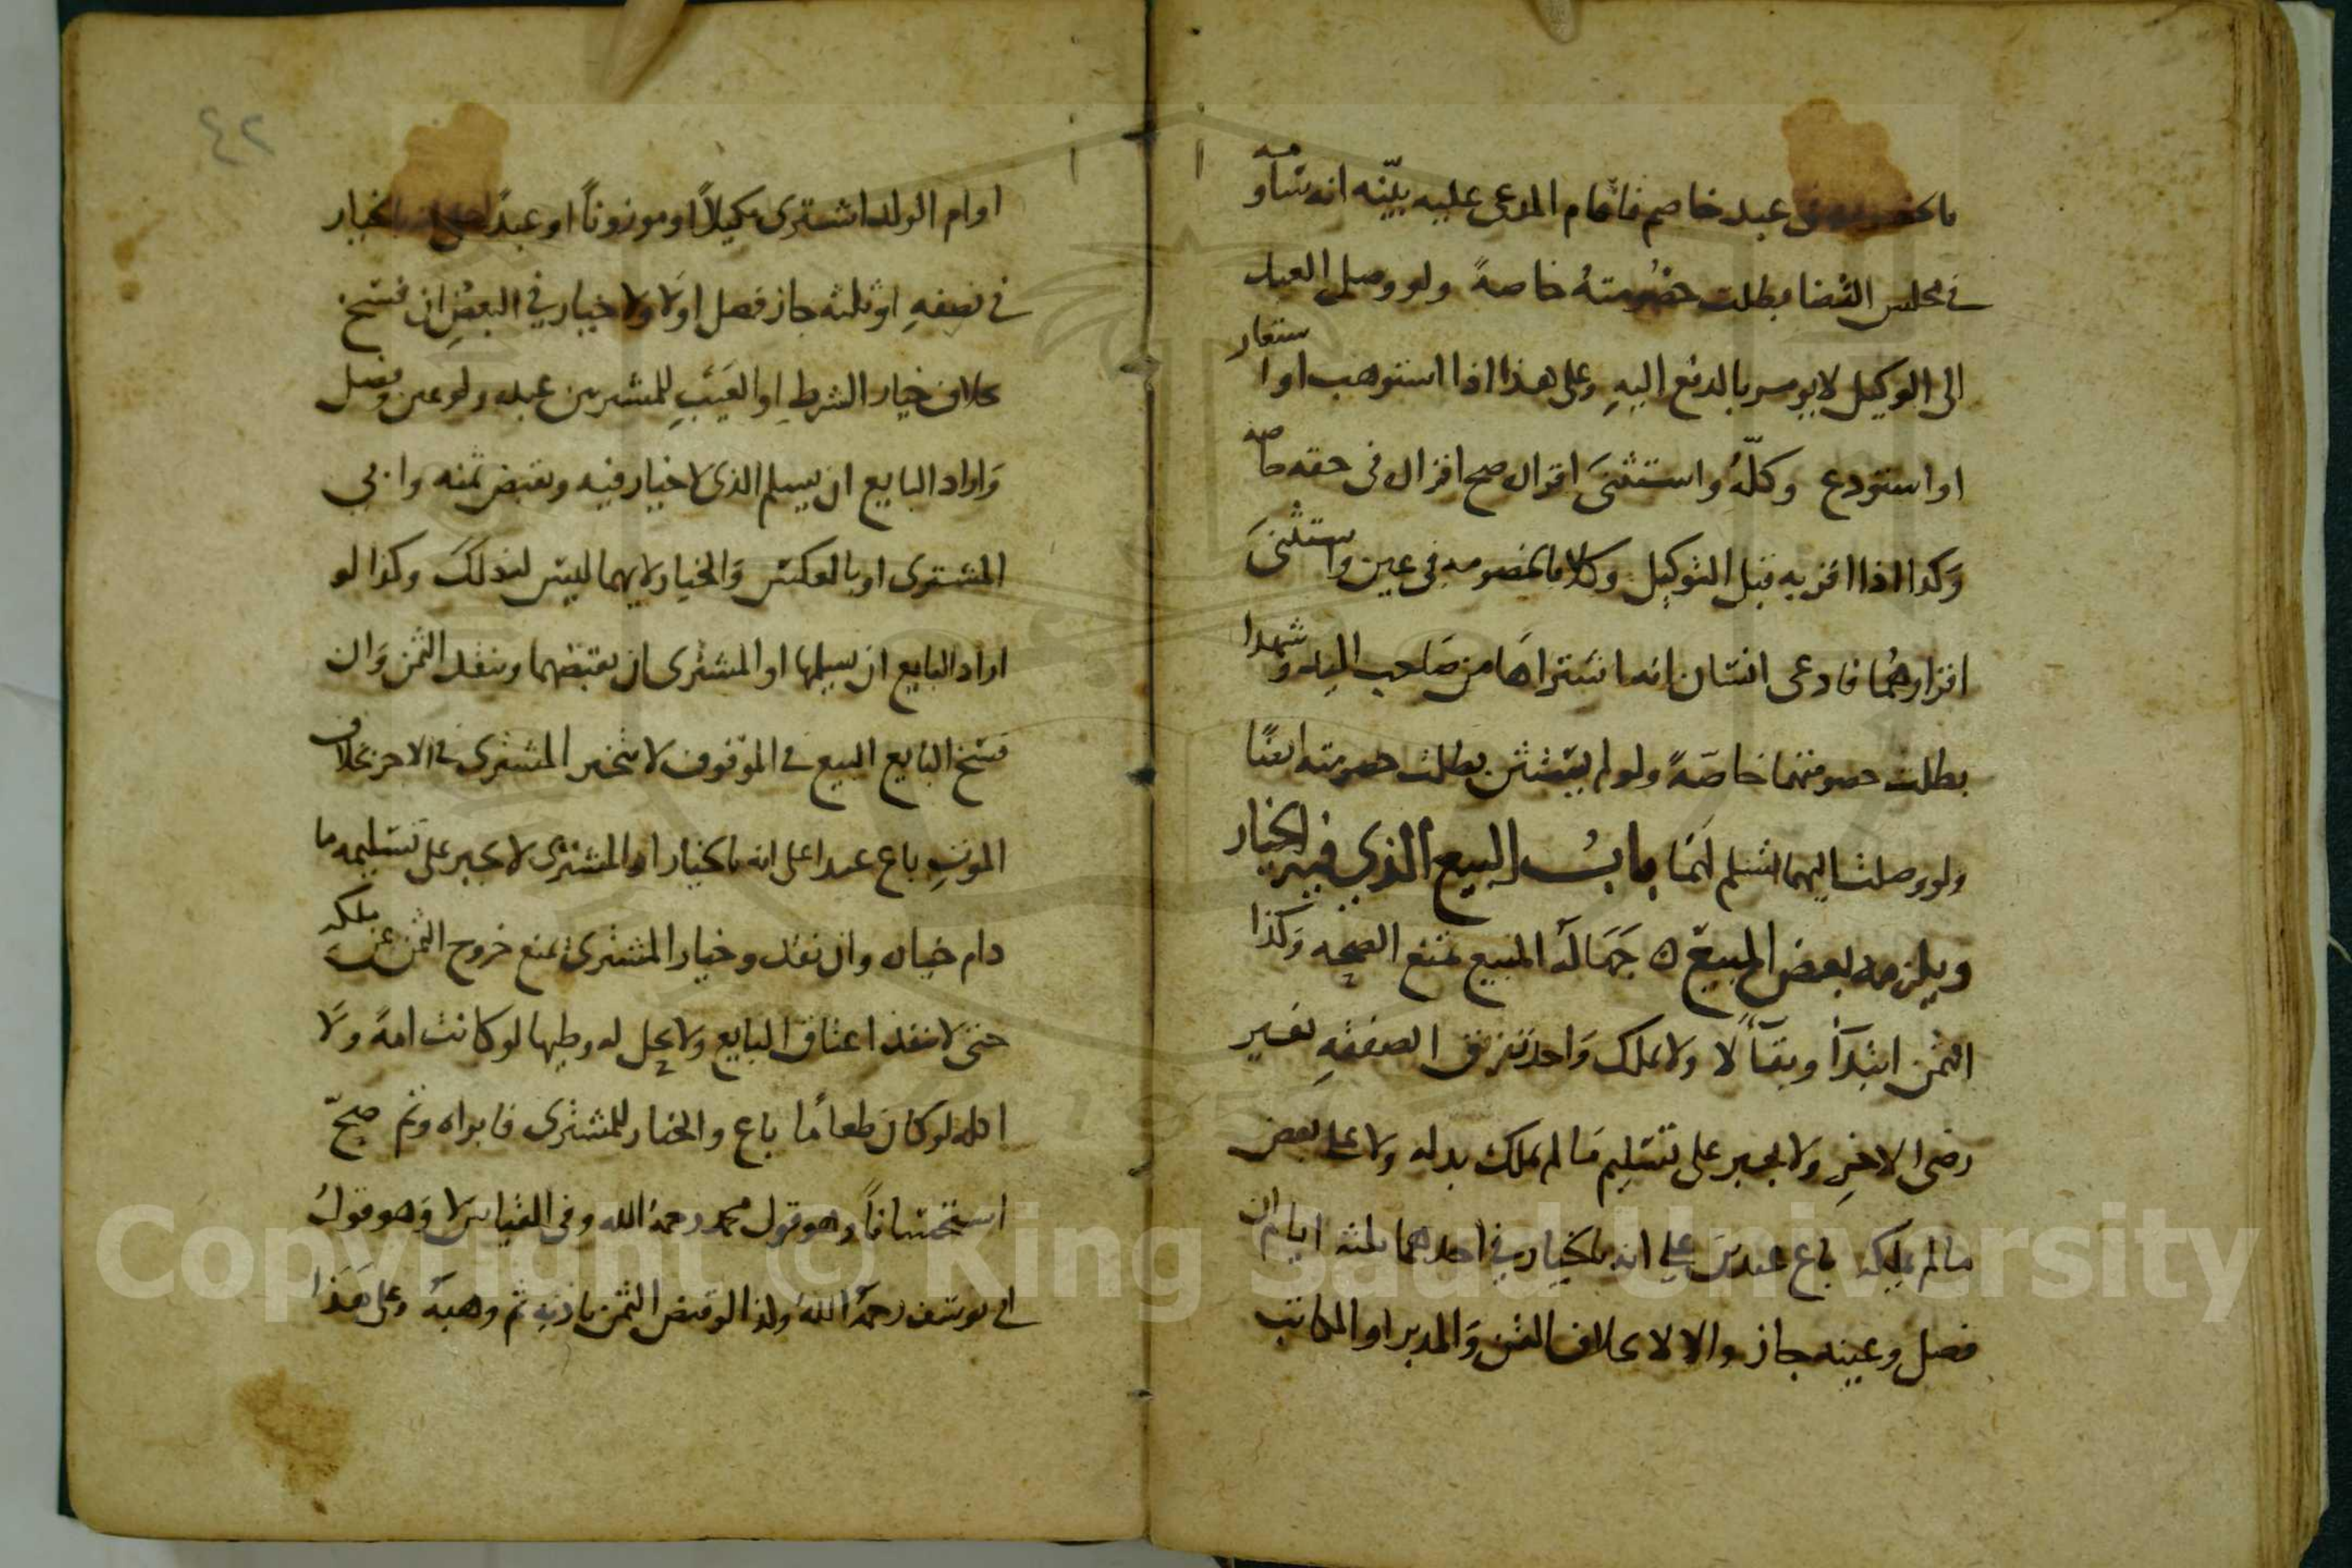 بالخصومة في عبد خاصم فاقام المدعى عليه بيّنه انه ساومه
في مجلس القضا بطلت خصُومتهُ خاصةً ولو وصل العبد
الى الوكيل لا يومر بالدفع اليهِ وعلى هذا اذا استوهب او استعار
او استودع وكلّهُ واستثنىَ اقراره صح اقراره في حقه خاصه
وَكذا اذا اقر به قبل التوكيل وكلا بالخصومه في عين واستثنىَ
اقرارهُما فادعى انسَان انه اشتراهَا من صَاحب اليد وشهدا
بطلت خصومتهما خاصّةً ولو لم يستثن بطلت خصومته ايضًا
ولو وصلت اليهما لتسلم لهَا بابُ البيع الذي فيه الخيار
ويلزمه بعض المبيع ٥ جَهَالة المبيع تمنع الصحه وَكذا
الثمن ابتدآءً وبقآءً لا ولا يملك وَاحد تفريق الصفقهِ بغير
رضى الاخرِ ولا يجبر على تسْليم مَا لم يملك بدله ولا على بعض
ما لم يملكه باع عبدين على انه بالخيار في احدهما ثلثه ايام ان
فصل وعينه جاز والا لا بخلاف القن وَالمدبر او المكاتب
٤٢
او ام الولد اشترى مكيلاً او موزوناً او عبدًا على انه بالخيار
في نصفهِ او ثلثه جاز فصل اولا ولا خيار في البعضِ ان فسخ
بخلاف خيار الشرطِ او العَيْبِ للمشريين عبده ولو عين وفصل
وَاراد البايع ان يسلم الذى لا خيار فيه وبقبض ثمنه وابى
المشترى او بالعكس وَالخيار لايهما ليس له ذلك وكذا لو
اراد البايع ان يسلمها او المشترى ان يقبضهما وينقد الثمن وَان
فسَخ البايع البيع في الموقوف لا يتخير المشترى في الاخر بخلاف
الموتِ باع عبدا على انه بالخيار او المشترى لا يجبر على تسْليمه ما
دام خياره وان نقد وخيار المشترى يمنع خروج الثمن عن ملكه
حتى لا ينفذ اعتاق البايع ولا يحل له وطيها لو كانت امةً ولا
اكله لو كان طعامًا باع والخيار للمشترى فابراه وتم صحّ
استحسَاناً وهو قول محمد رحمهُ الله وفي القياس لا وَهو قولُ
ابي يوسَف رحمهُ اللهُ ولذا لو قبض الثمن باذنهِ ثم وهبهُ وعلى هَذَا
Copyright © King Saud University